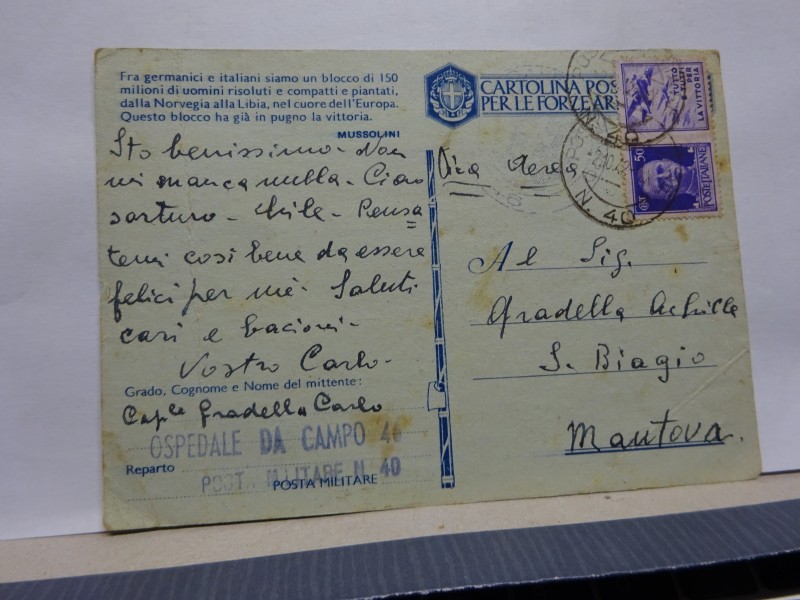 Fra germanici e italiani siamo un blocco di 150
milioni di uomini risoluti e compatti e piantati,
dalla Norvegia alla Libia, nel cuore dell'Europa.
Questo blocco ha già in pugno la vittoria.
MUSSOLINI
Sto benissimo - Non
mi manca nulla - Ciao
- Pensa
temi così bene da essere
felici per me - Saluti
cari e bacioni -
Vostro Carlo -
Grado, Cognome e Nome del mittente:
Cap.le Gradella Carlo
OSPEDALE DA CAMPO
Reparto
POSTA MILITARE N. 40
POSTA MILITARE
CARTOLINA POS
PER LE FORZE AR
Via Aerea
TUTTO
TUTTI
PER
LA VITTORIA
50
POSTE ITALIANE
N. 40
N. 40
Al Sig.
Gradella Achille
S. Biagio
Mantova.